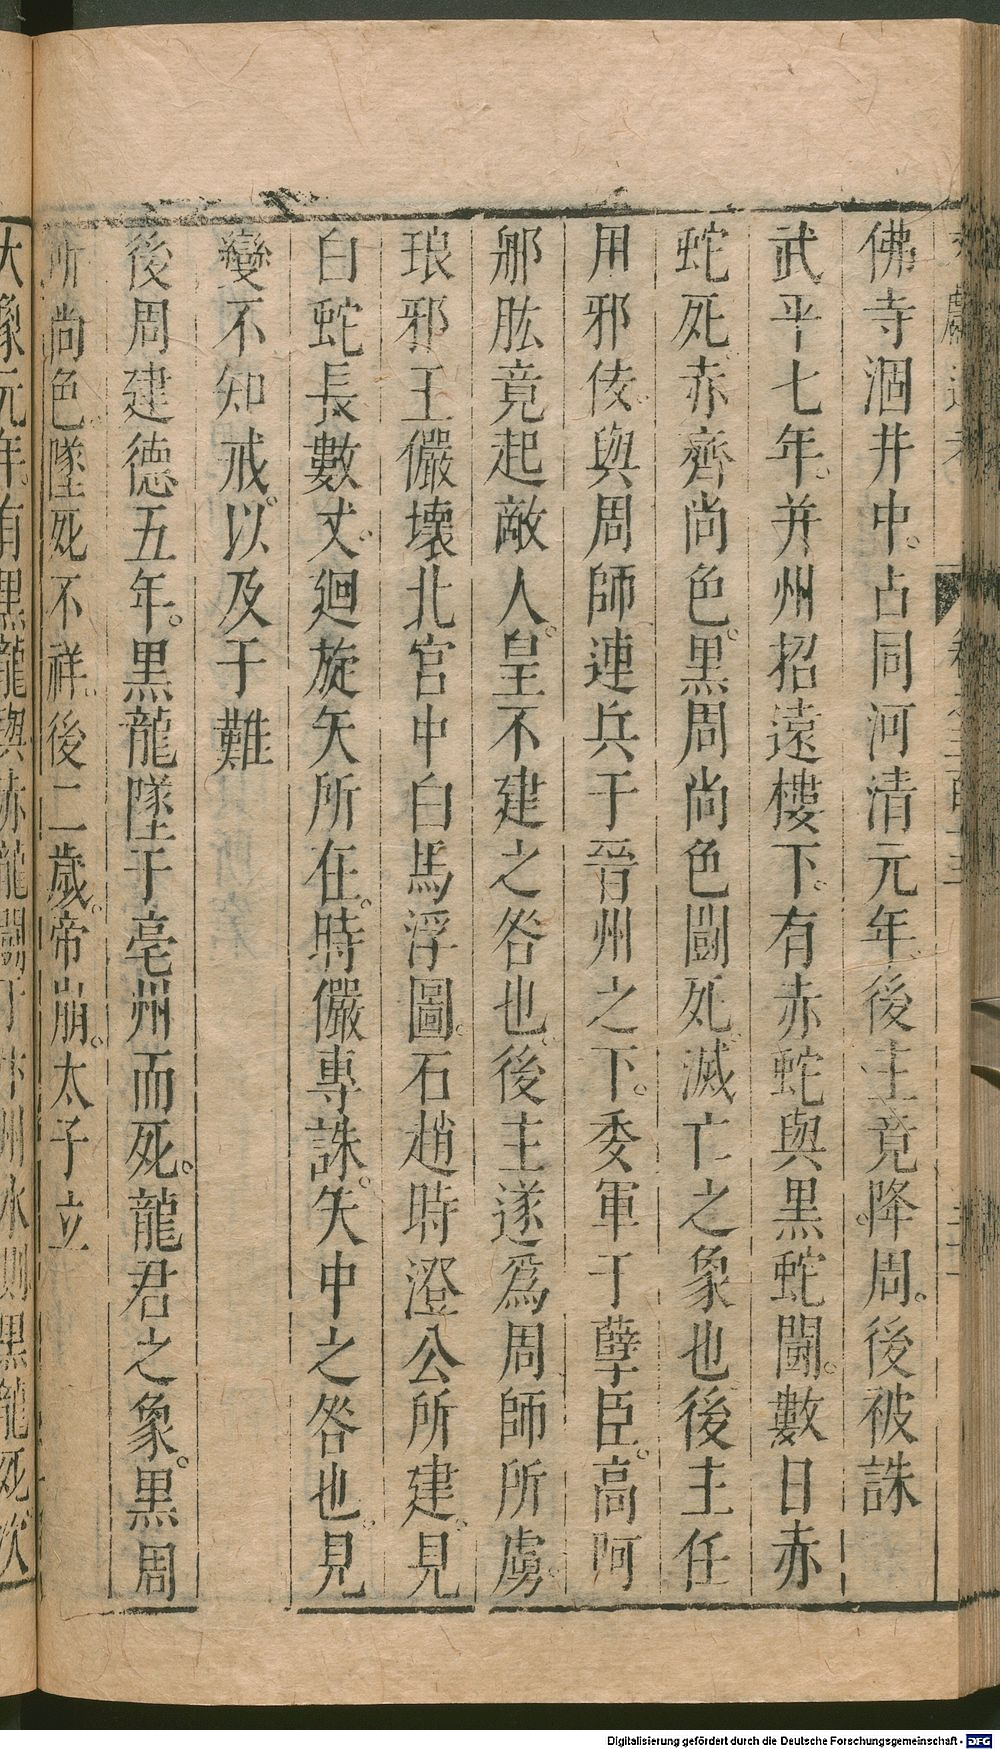 佛寺涸井中占同河清元年後主竟降周後被誅
武平七年并州招遠樓下有赤蛇與黒蛇闘數日赤
蛇死赤齊尚色黒周尚色闘死滅亡之象也後主任
用邪佞與周師連兵于晉州之下委軍于孽臣高阿
那肱竟起敵人皇不建之咎也後主遂爲周師所虜
琅邪王儼壞北宮中白馬浮圖石趙時澄公所建見
白蛇長數丈廻旋矢所在時儼專誅矢中之咎也見
變不知戒以及于難
後周建德五年黒龍墜于亳州而死龍君之象黒周
所尚色墜死不祥後二歲帝崩太子立
大象元年有黒龍與赤龍闘于汴州水則黒龍死次
Digitalisierung gefördert durch die Deutsche Forschungsgemeinschaft - DFG